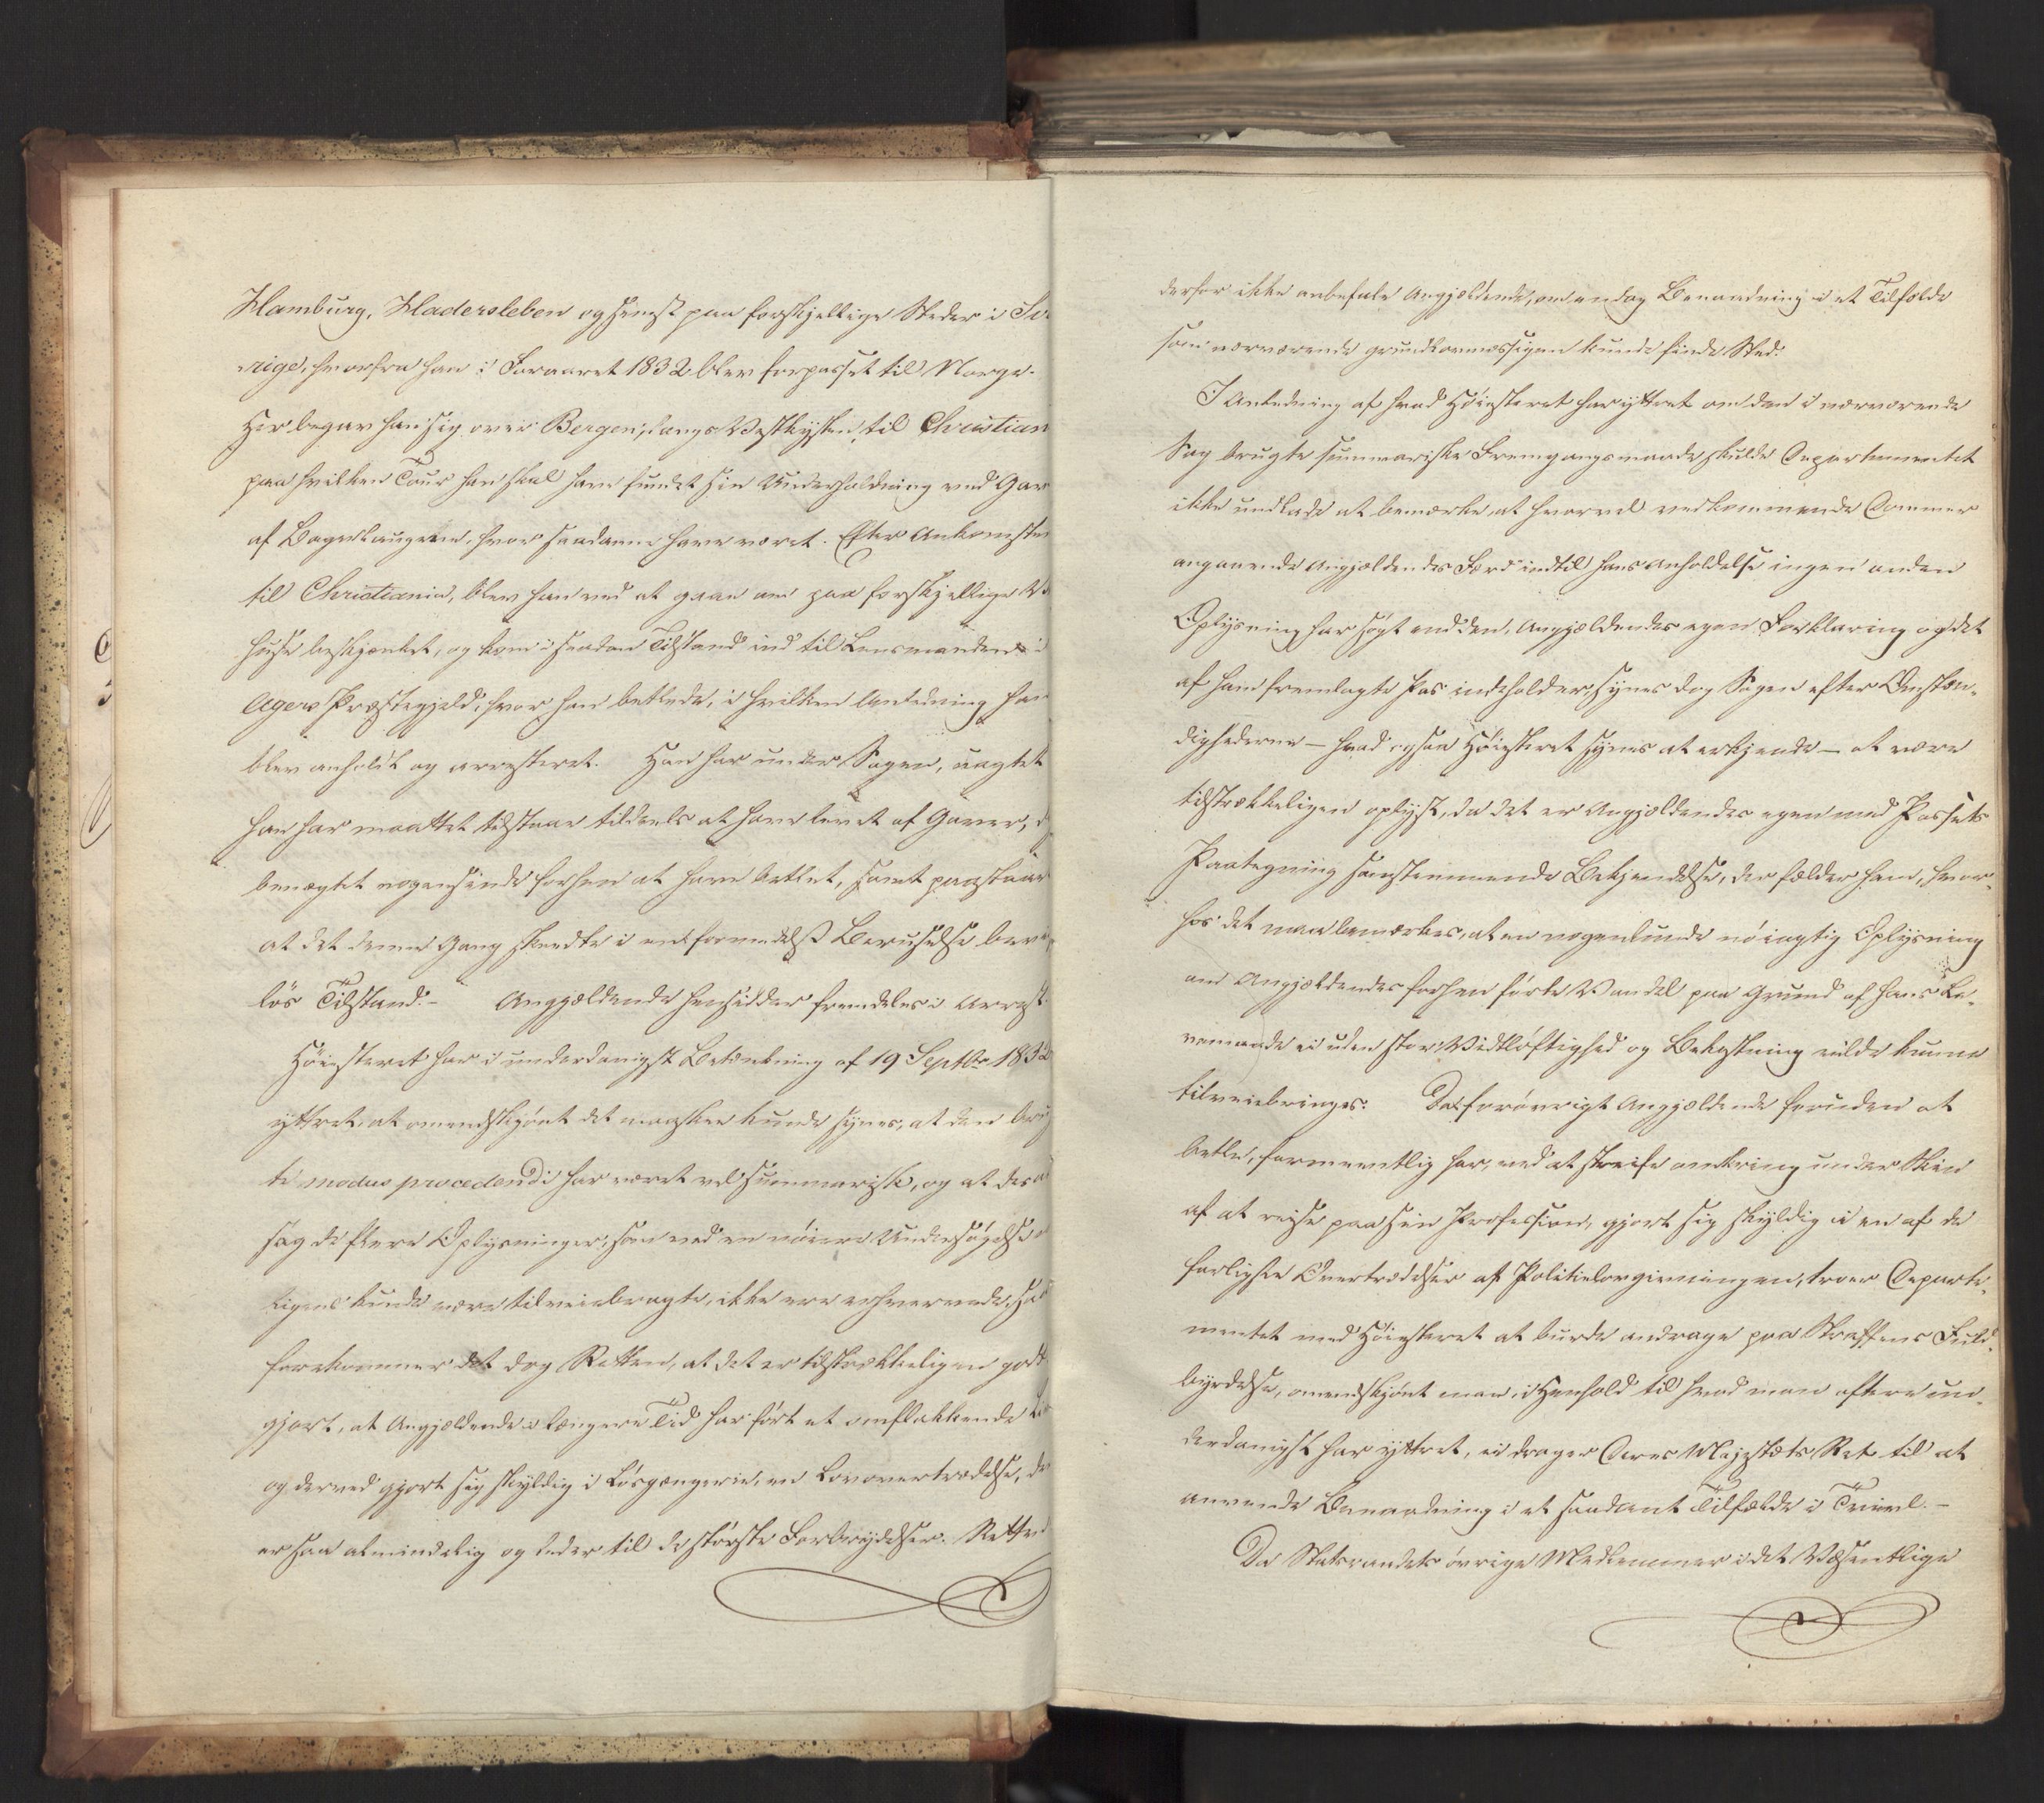 Hamburg, Hadersleben og senest paa forskjellige Steder i Sve
rige, hvorfra han i Foraaret 1832 blev forpasset til Norge.
Her begav han sig over Bergen, langs Vestkysten, til Christian
paa hvilken Tour han skal have fundet sin Underholdning ved Gav
af Bagerlaugene, hvor saadanne have været. Efter Ankomsten
til Christiania, blev han ved at gaae om paa forskjellige V
huse beskjænket, og kom i saadan Tilstand ind til Lensmanden i
Agers Præstegjeld, hvor han betlede, i hvilken Anledning han
blev anholdt og arresteret. Han har under Sagen, uagtet
han har maattet tilstaae tildeels at have levet af Gaver,
benægtet nogensinde forhen at have betlet, samt paastaaet
at det denne Gang skeedte i en formedelst Beruselse bevidst
løs Tilstand. – Angjældende hensidder fremdeles i Arrest.
Høiesteret har i underdanigst Betænkning af 19 Septbr 1832
yttret, at omendskjønt det maaskee kunde synes, at den brug
te modus procedendi har været vel summarisk, og at des
sag de flere Oplysninger, som ved en nøiere Undersøgelse
ligens kunde være tilveiebragte, ikke ere erhvervede, saa
forekommer det dog Retten, at det er tilstrækkeligen godt
gjort, at Angjældende i længere Tid har ført et omflakkende Liv
og derved gjort sig skyldig i Løsgængerie, en Lovovertrædelse, der
er saa almindelig og leder til de største Forbrydelser. Retten
derfor ikke anbefale Angjældende, om endog Benaadning i et Tilfælde
som nærværende grundlovmæssigen kunde finde Sted.
I Anledning af hvad Høiesteret har yttret om den i nærværende
Sag brugte summariske Fremgangsmaade skulde Departementet
ikke undlade at bemærke, at hvorvel vedkommende Dommer
angaaende Angjældendes Færd indtil hans Anholdelse ingen anden
Oplysning har søgt end den, Angjældendes egen Forklaring og det
af ham fremlagte Pas indeholder, synes dog Sagen efter Omstæn-
dighederne – hvad ogsaa Høiesteret synes at erkjende – at være
tilstrækkeligen oplyst, da det er Angjældendes egen med Passets
Paategning samstemmende Bekjendelse, der fælder ham, hvor-
hos det maa bemærkes, at en nogenlunde nøiagtig Oplysning
om Angjældendes forhen førte Vandel paa Grund af hans Le-
vemaade ei uden stor Vidtløftighed og Bekostning vilde kunne
tilveiebringes. Da forøvrigt Angjældende foruden at
betle, formeentlig har, ved at streife omkring under Skin
af at reise paa sin Profession, gjort sig skyldig i en af de
farligste Overtrædelser af Politielovgivningen, troer Departe-
mentet med Høiesteret at burde andrage paa Straffens Fuld-
byrdelse, omendskjønt man, i Henhold til hvad man oftere un-
derdanigst har yttret, ei drager Deres Majestæts Ret til at
anvende Benaadning i et saadant Tilfælde i Tvivl. –
Da Statsraadets øvrige Medlemmer i det Væsentlige